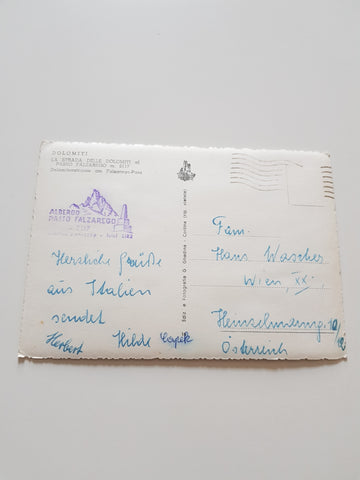 DOLOMITI
LA STRADA DELLE DOLOMITI al
PASSO FALZAREGO m. 2117
Dolomitenstrasse am Falzarego-Pass
ALBERGO
PASSO FALZAREGO
Herzliche Grüße
aus Italien
sendet
Herbert Hilde Capek
Ediz. e Fotografia G. Ghedina - Cortina
Fam.
Hans Wascher
Wien, XX.,
Österreich